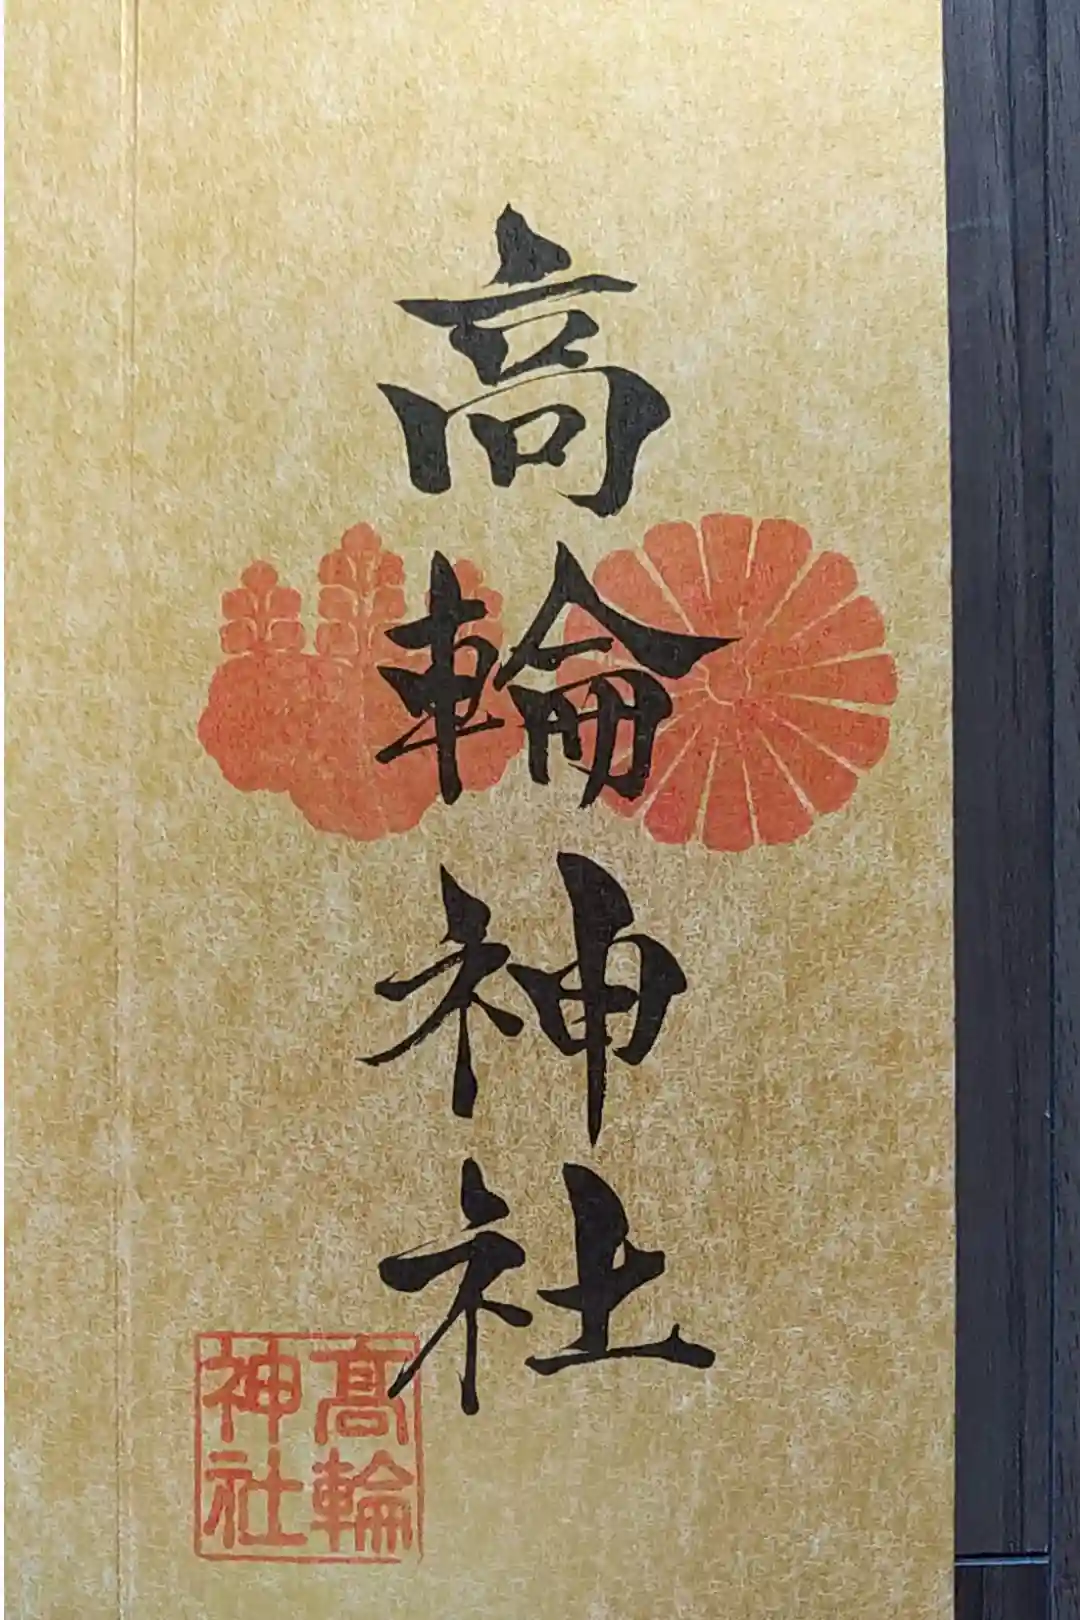 高輪神社
髙輪
神社